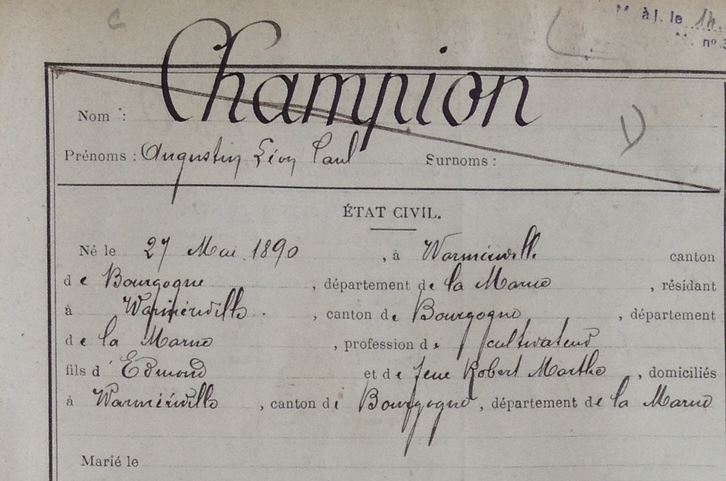 M à l. le 14.
n° 3
C
Champion
Nom :
Prénoms : Augustin Léon Paul Surnoms :
ÉTAT CIVIL.
Né le 27 Mai 1890 , à Warmériville canton
de Bourgogne , département de la Marne , résidant
à Warmériville . , canton de Bourgogne , département
de la Marne , profession de cultivateur
fils d' Edmond et de feue Robert Marthe , domiciliés
à Warmériville , canton de Bourgogne , département de la Marne
Marié le